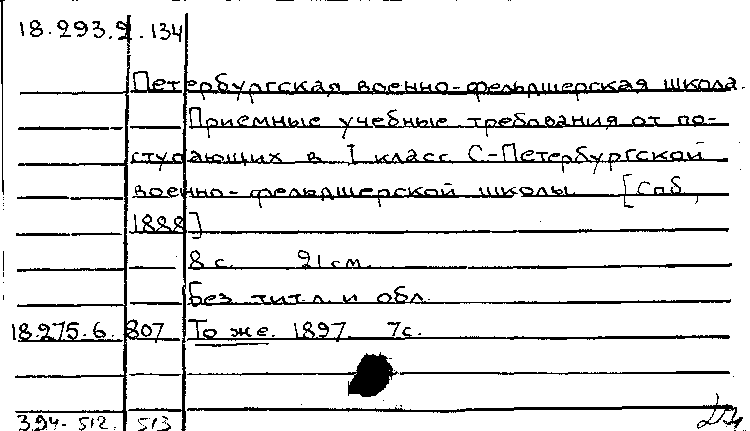 18.293.2.134
Петербургская военно-фельдшерская школа.
Приемные учебные требования от по-
ступающих в I класс С-Петербургской
военно-фельдшерской школы [Спб,
1888]
8 с. 21 см.
Без тит. л. и обл.
18.275.6.807 То же. 1897. 7с.
394-512. 513